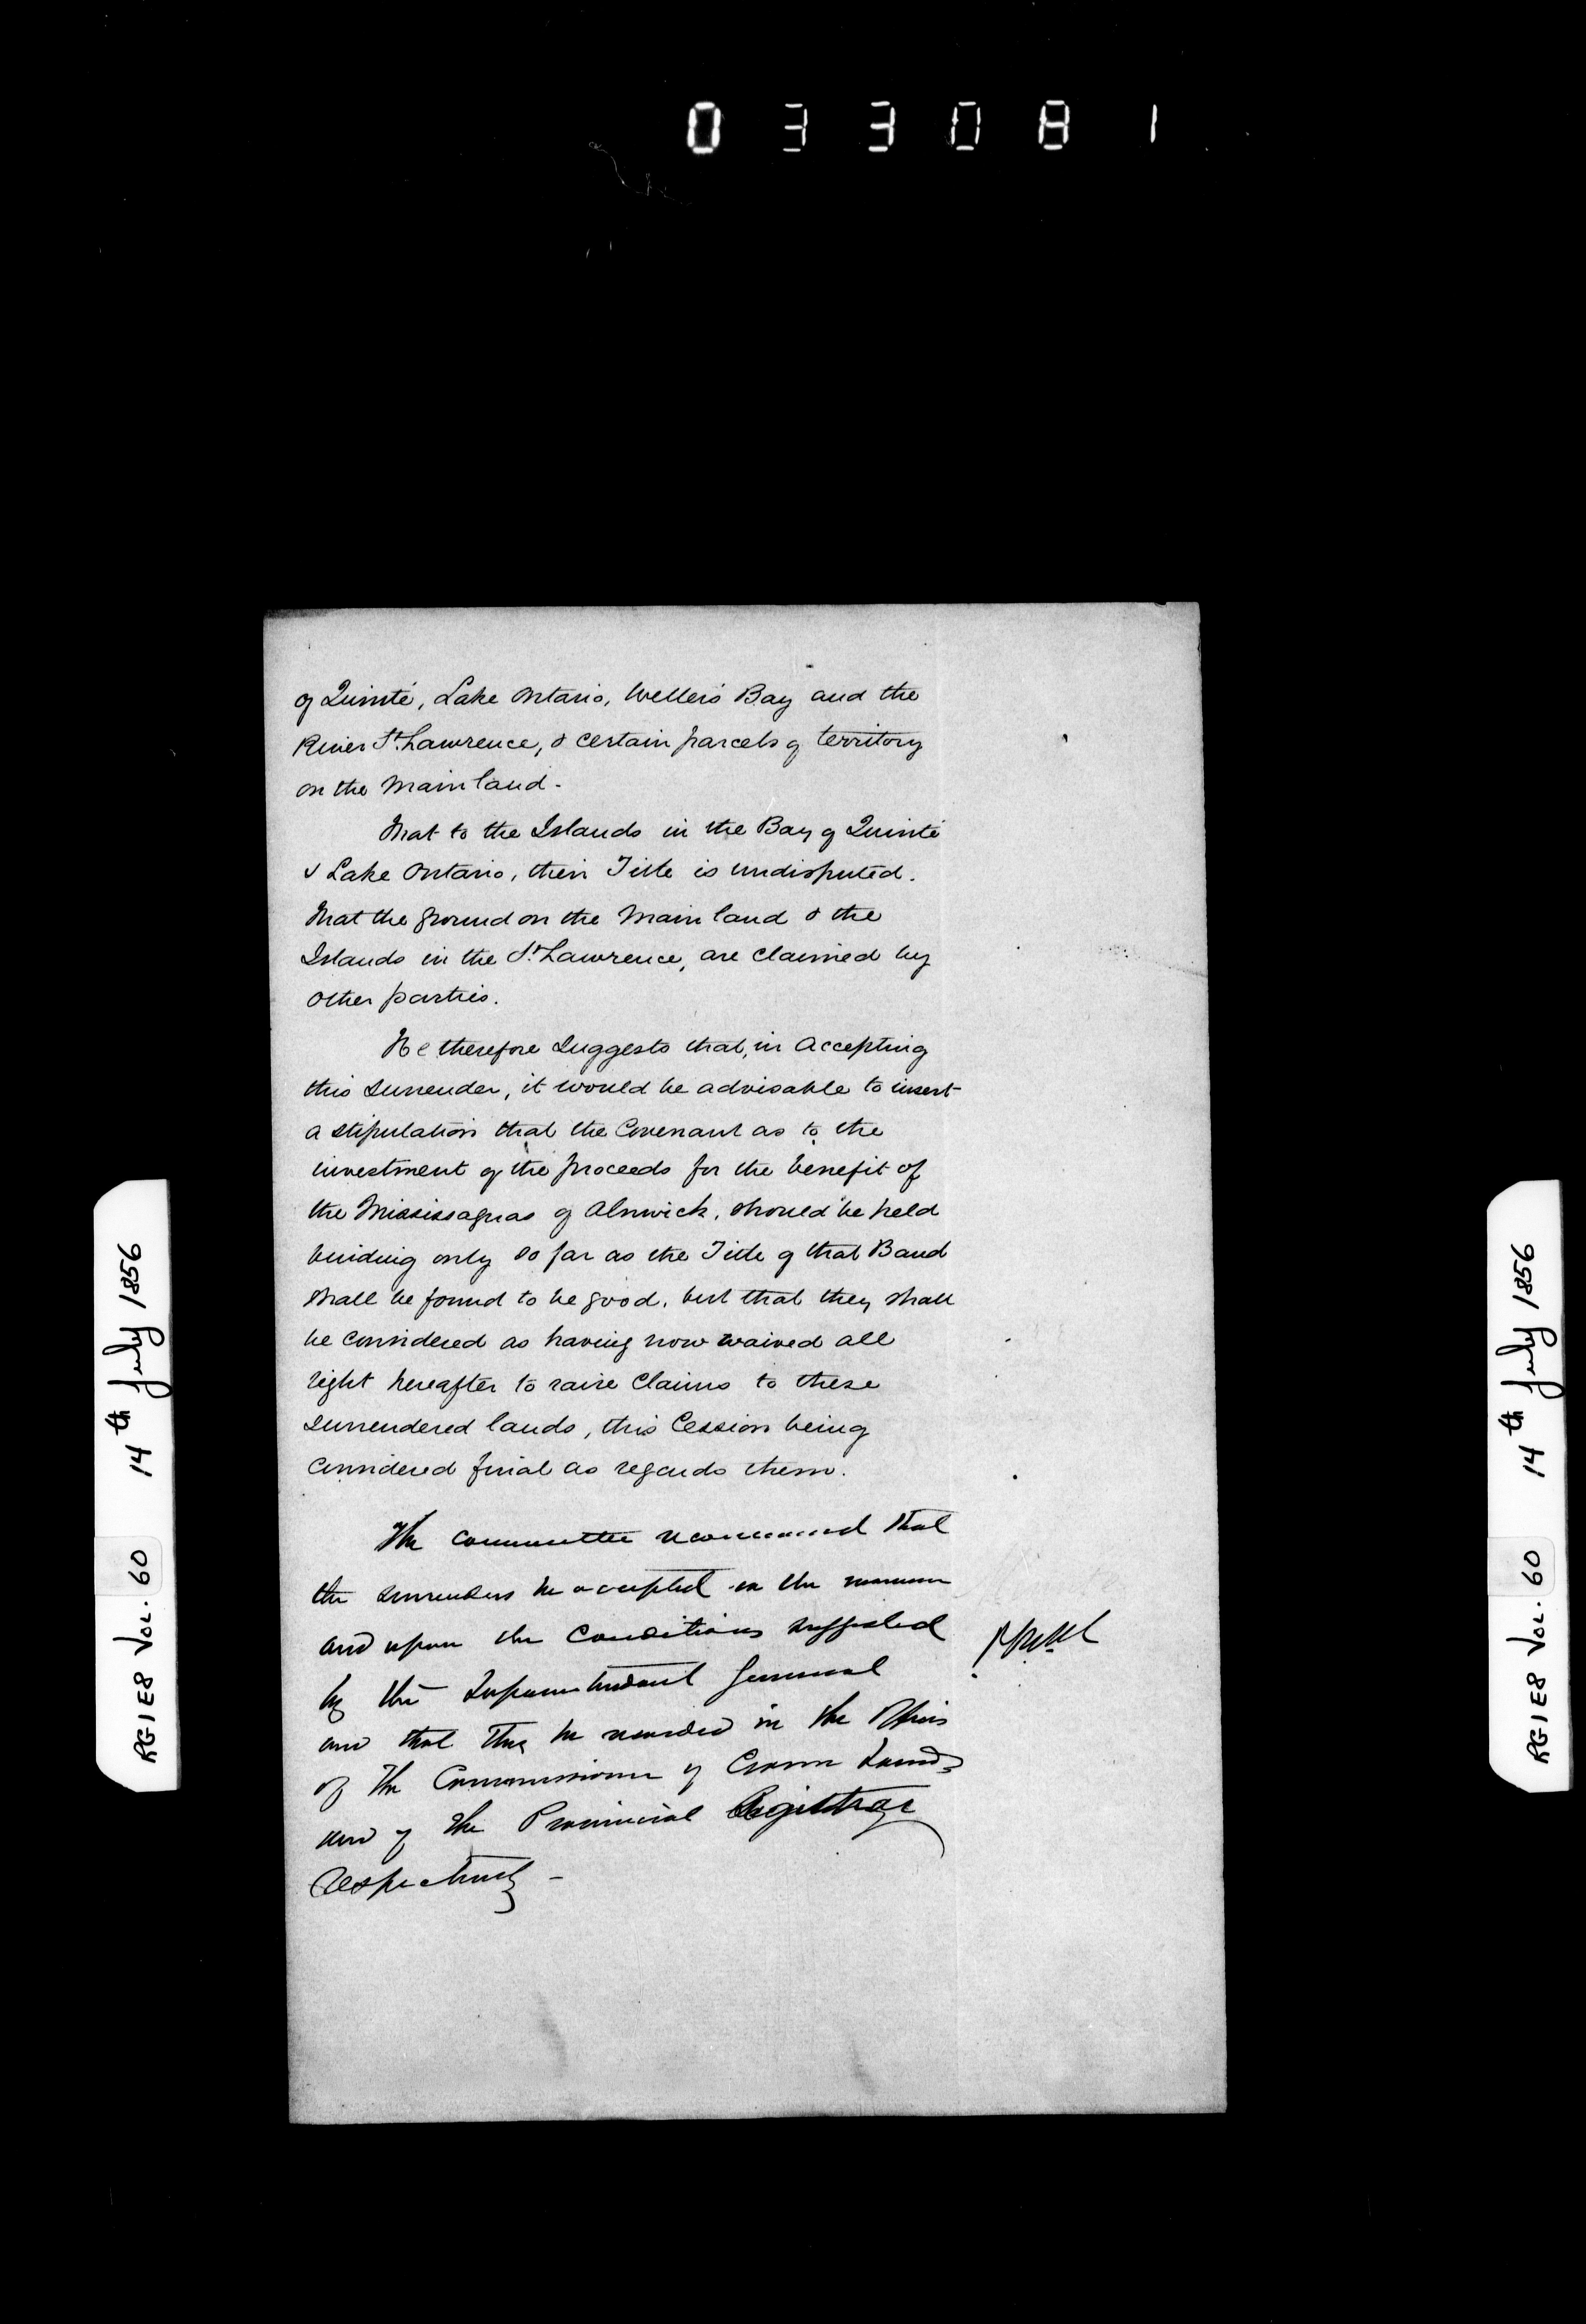 033081
of Quinté, Lake Ontario, Weller's Bay and the
River St. Lawrence, & certain parcels of territory
on the Main land.
That to the Islands in the Bay of Quinté
& Lake Ontario, their Title is undisputed.
That the ground on the Main land & the
Islands in the St. Lawrence, are claimed by
other parties.
He therefore suggests that, in accepting
this surrender, it would be advisable to insert
a stipulation that the Covenant as to the
investment of the proceeds for the benefit of
the Mississaguas of Alnwick, should be held
binding only so far as the Title of that Band
shall be found to be good, but that they shall
be considered as having now waived all
right hereafter to raise Claims to these
surrendered lands, this Cession being
considered final as regards them.
The Committee recommend that
the surrenders be accepted in the manner
and upon the Conditions suggested
by the Superintendent General
and that they be recorded in the Offices
of the Commissioner of Crown Lands
and of the Provincial Registrar
respectively -
RG1E8 VOL. 60 14th July 1856
RG1E8 VOL. 60 14th July 1856